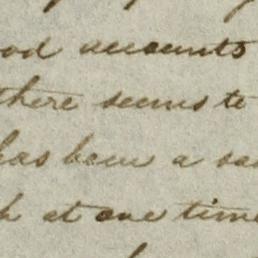 accounts
there seems to
has been a
at one time